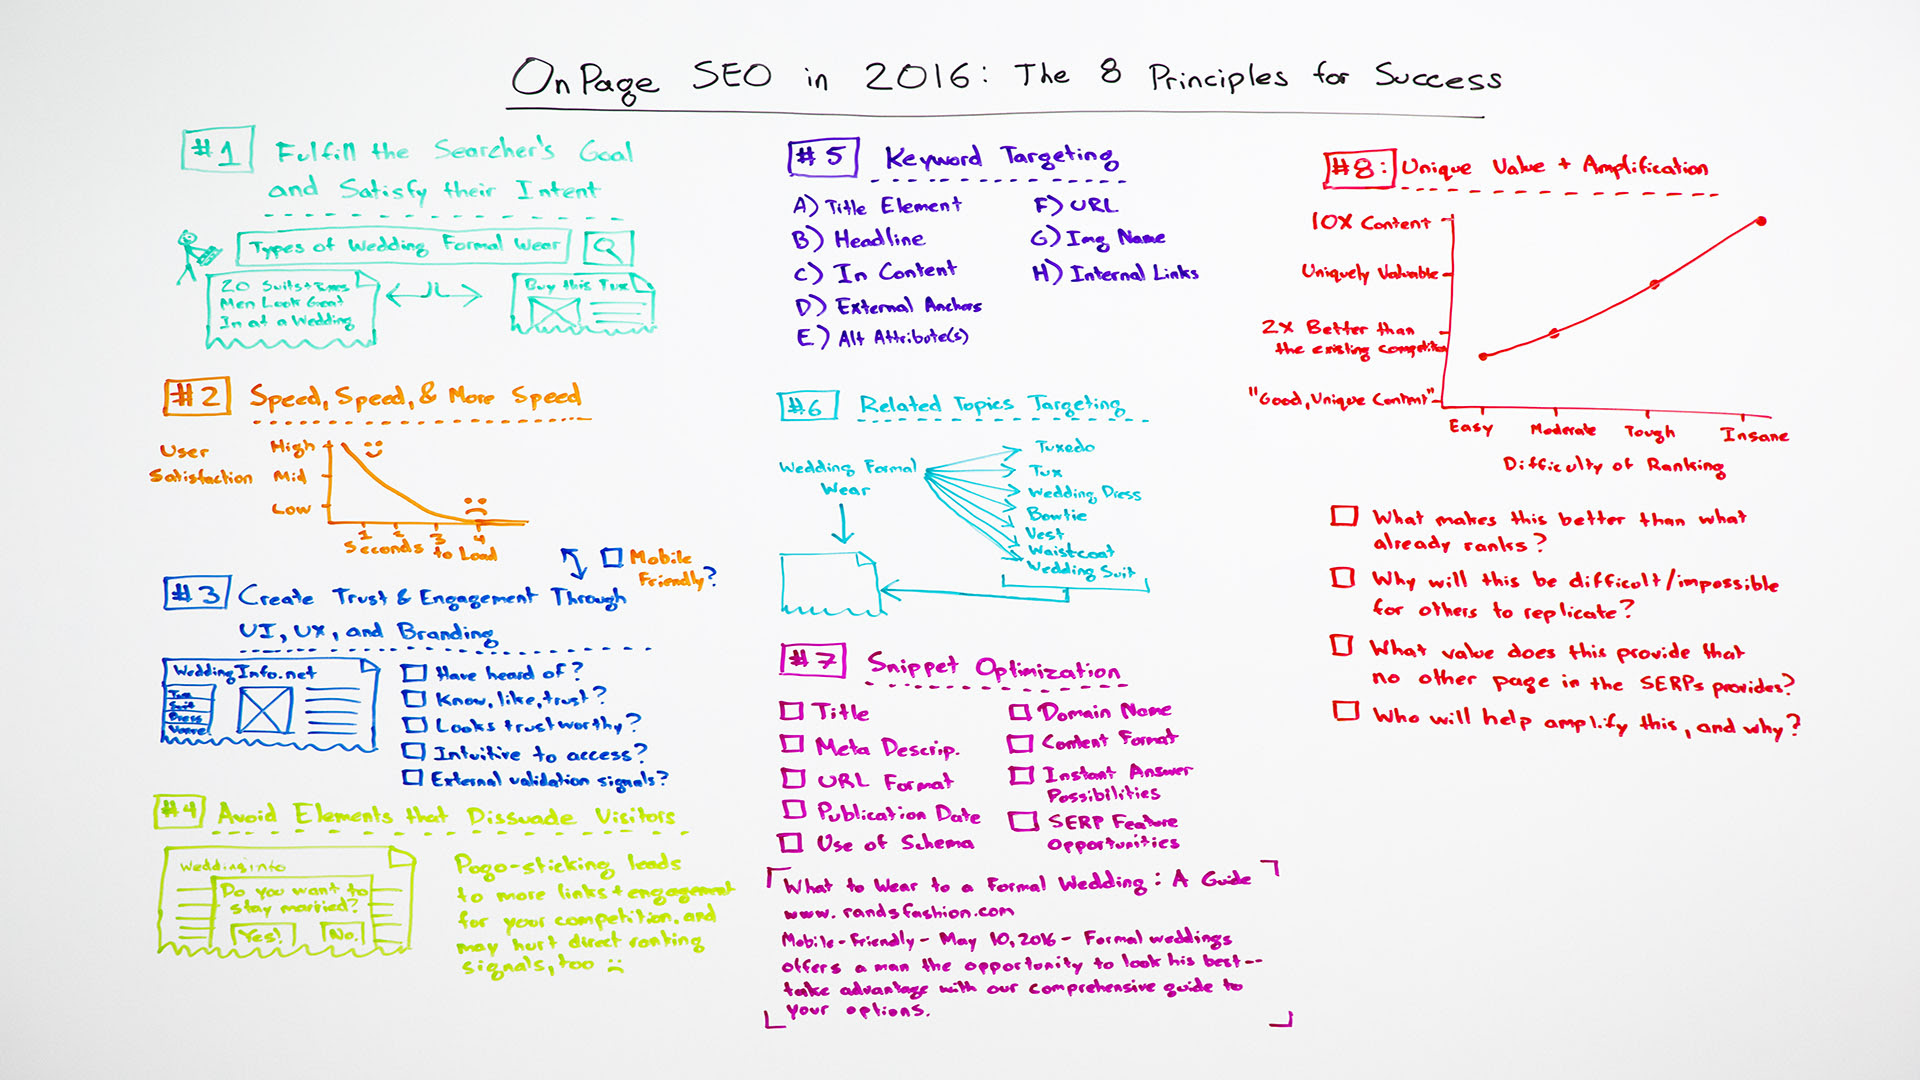 On Page SEO in 2016: The 8 Principles for Success
#1 Fulfill the Searcher's Goal
and Satisfy their Intent
Types of Wedding Formal Wear
20 Suits + Tuxes
Men Look Great
In at a Wedding
Buy this Tux
#2 Speed, Speed, & More Speed
User
Satisfaction
High
Mid
Low
1 2 3 4
Seconds to Load
Mobile
Friendly?
#3 Create Trust & Engagement Through
UI, UX, and Branding
WeddingInfo.net
Tux
Suit
Dress
Have heard of?
Know, like, trust?
Looks trustworthy?
Intuitive to access?
External validation signals?
#4 Avoid Elements that Dissuade Visitors
Weddinginfo
Do you want to
stay married?
Yes! No.
Pogo-sticking leads
to more links + engagement
for your competition, and
may hurt direct ranking
signals, too
#5 Keyword Targeting
A) Title Element
B) Headline
C) In Content
D) External Anchors
E) Alt Attribute(s)
F) URL
G) Img Name
H) Internal Links
#6 Related Topics Targeting
Wedding Formal
Wear
Tuxedo
Tux
Wedding Dress
Bowtie
Vest
Waistcoat
Wedding Suit
#7 Snippet Optimization
Title
Meta Descrip.
URL Format
Publication Date
Use of Schema
Domain Name
Content Format
Instant Answer
Possibilities
SERP Feature
Opportunities
What to Wear to a Formal Wedding: A Guide
www.randsfashion.com
Mobile-Friendly - May 10, 2016 - Formal weddings
offers a man the opportunity to look his best--
take advantage with our comprehensive guide to
your options.
#8: Unique Value + Amplification
10X Content
Uniquely Valuable
2X Better than
the existing competition
"Good, Unique Content"
Easy Moderate Tough Insane
Difficulty of Ranking
What makes this better than what
already ranks?
Why will this be difficult/impossible
for others to replicate?
What value does this provide that
no other page in the SERPs provides?
Who will help amplify this, and why?